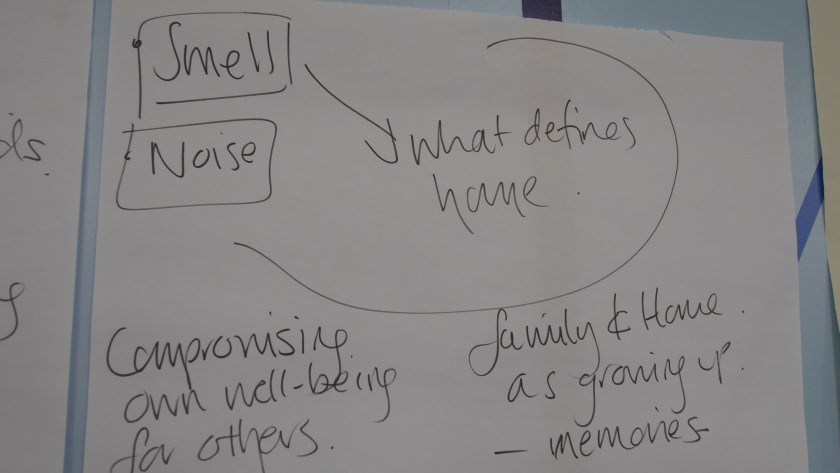 Smell
Noise
What defines
home.
Compromising
own well-being
for others.
family & Home.
as growing up.
- memories